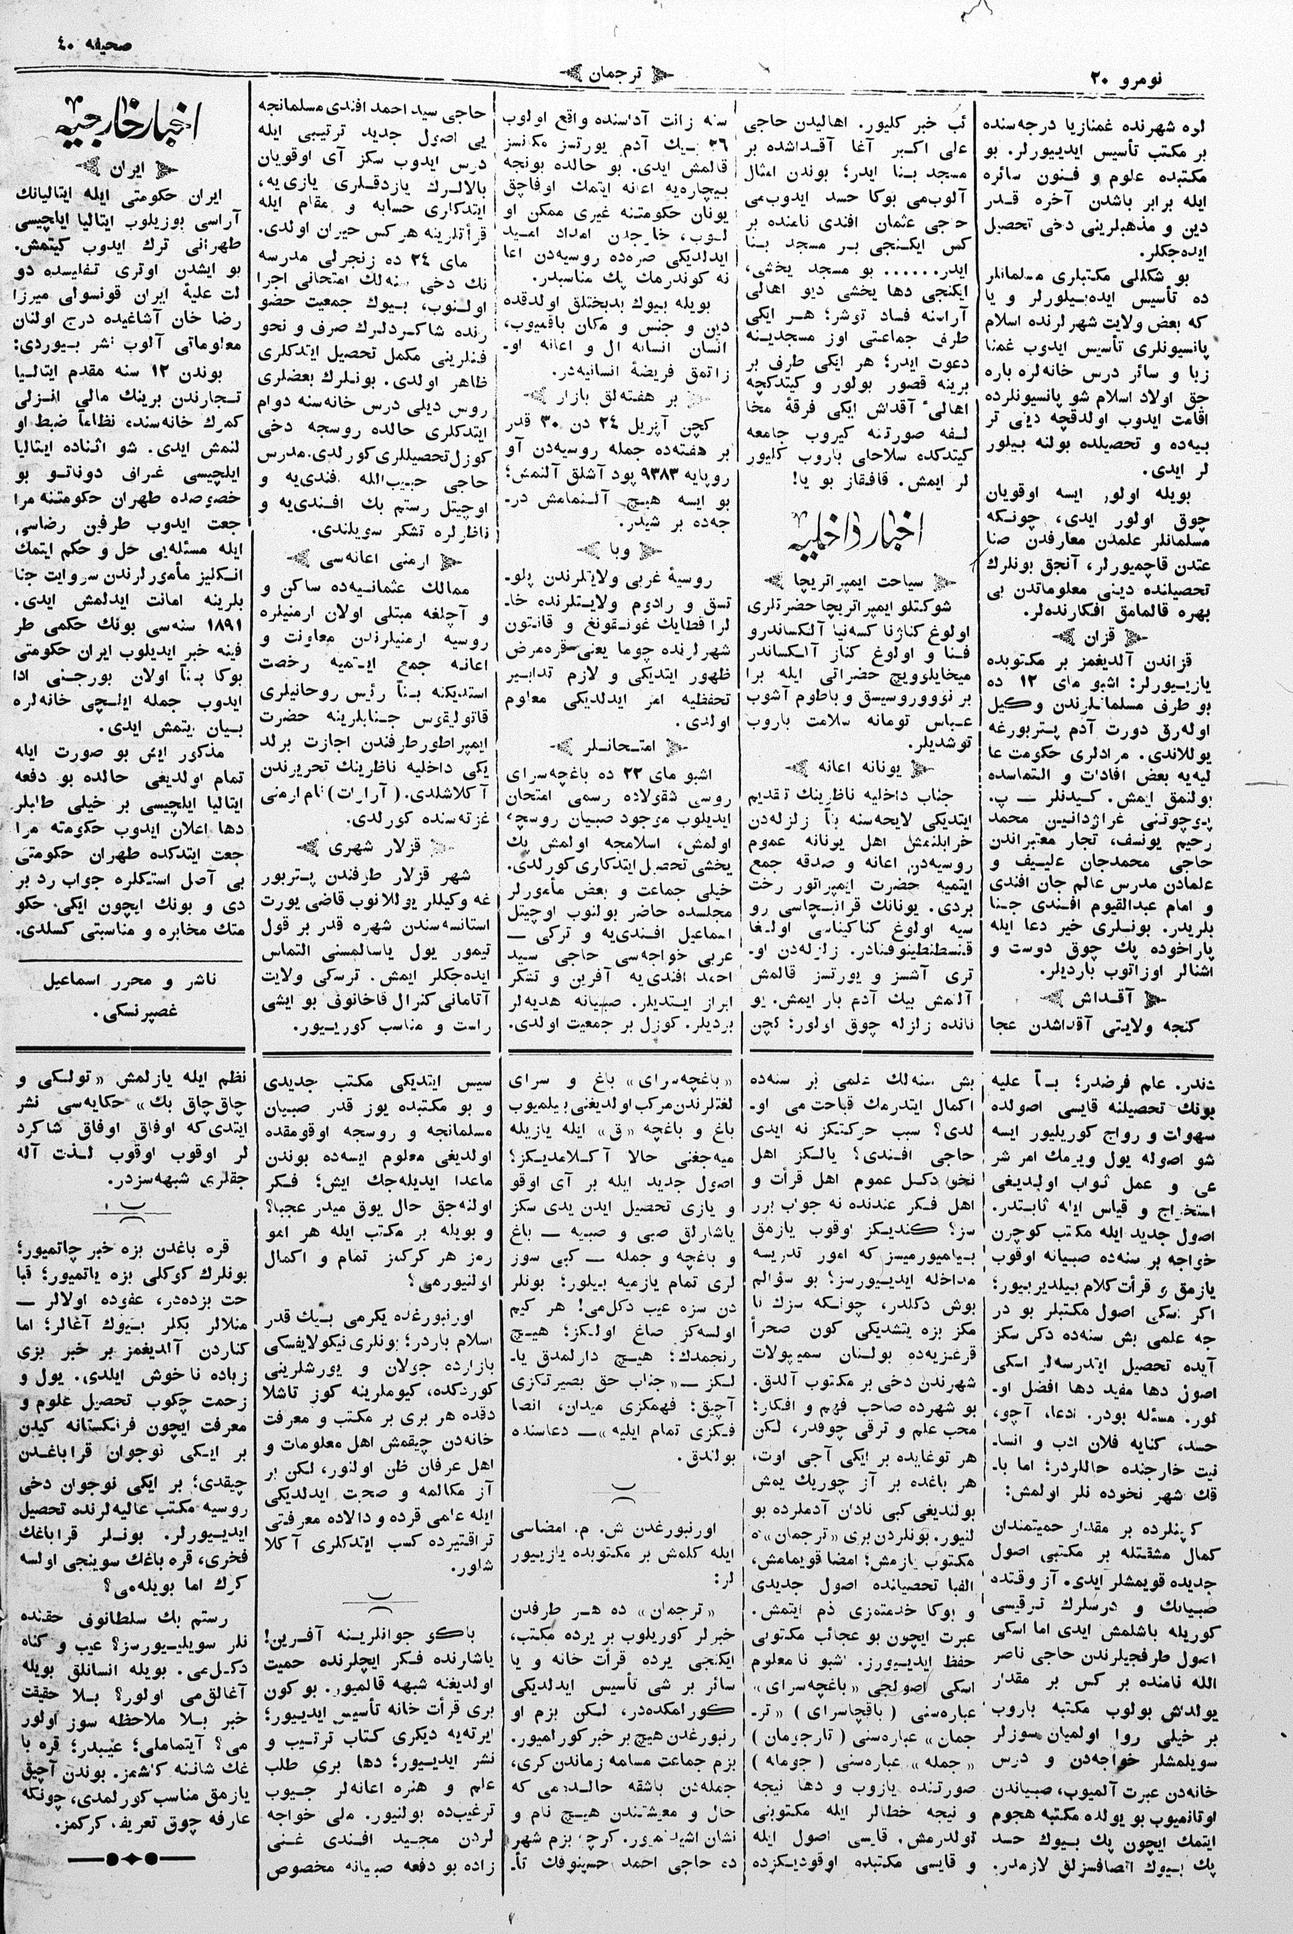 نومرو ٢٠
ترجمان
صحیفه ٤٠
لوه شهرنده غمنازیا درجه‌سنده
بر مکتب تأسیس ایدییورلر. بو
مکتبده علوم و فنون سائره
ایله برابر باشدن آخره قدر
دین و مذهبلرینی دخی تحصیل
ایده‌جکلر.
بو شکللی مکتبلری مسلمانلر
ده تأسیس ایده‌بیلورلر و یا
که بعض ولایت شهرلرنده اسلام
پانسیونلری تأسیس ایدوب غمنا
زیا و سائر درس خانه‌لره باره
جق اولاد اسلام شو پانسیونلرده
اقامت ایدوب اولدقچه دینی تر
بیه‌ده و تحصیلده بولنه بیلور
لر ایدی.
بویله اولور ایسه اوقویان
چوق اولور ایدی، چونکه
مسلمانلر علمدن معارفدن صنا
عتدن قاچمیورلر، آنجق بونلرك
تحصیلنده دینی معلوماتدن بی
بهره قالمامق افکارنده‌لر.
قزان
قزاندن آلدیغمز بر مکتوبده
یازییورلر: اشبو مای ١٢ ده
بو طرف مسلمانلرندن وکیل
اوله‌رق دورت آدم پتربورغه
یوللاندی. مرادلری حکومت عا
لیه‌یه بعض افادات و التماسده
بولنمق ایمش. کیدنلر — پ.
پوچوتنی غراژدانین محمد
رحیم یوسف، تجار معتبراندن
حاجی محمدجان علییف و
علمادن مدرس عالم جان افندی
و امام عبدالقیوم افندی جنا
بلریدر. بونلری خیر دعا ایله
پاراخوده پك چوق دوست و
اشنالر اوزاتوب باردیلر.
آقداش
کنجه ولایتی آقداشدن عجا
ئب خبر کلیور. اهالیدن حاجی
علی اکبر آغا آقداشده بر
مسجد بنا ایدر؛ بوندن امثال
آلوب‌می بوکا حسد ایدوب‌می
حاجی عثمان افندی نامنده بر
کس ایکنجی بر مسجد بنا
ایدر...... بو مسجد یخشی،
ایکنجی دها یخشی دیو اهالی
آراسنه فساد توشر؛ هر ایکی
طرف جماعتی اوز مسجدینه
دعوت ایدر؛ هر ایکی طرف بر
برینه قصور بولور و کیتدکچه
اهالیٔ آقداش ایکی فرقهٔ مخا
لفه صورتنه کیروب جامعه
کیتدکده سلاحلی باروب کلیور
لر ایمش. قافقاز بو یا!
اخبار داخلیه
سیاحت ایمپراتریچا
شوکتلو ایمپراتریچا حضرتلری
اولوغ کناژنا کسه‌نیا آلکساندرو
فنا و اولوغ کناز آلکساندر
میخایلوویچ حضراتی ایله برا
بر نووروسیسق و باطوم آشوب
عباس تومانه سلامت باروب
توشدیلر.
یونانه اعانه
جناب داخلیه ناظرینك تقدیم
ایتدیکی لایحه‌سنه بنأ زلزله‌دن
خرابلنمش اهل یونانه عموم
روسیه‌دن اعانه و صدقه جمع
ایتمیه حضرت ایمپراتور رخت
بردی. یونانك قرالیچاسی رو
سیه اولوغ کناکیناسی اولغا
قنسطنطینوفنادر. زلزله‌دن او-
تری آشسز و یورتسز قالمش
آلتمش بیك آدم بار ایمش. یو
نانده زلزله چوق اولور؛ کچن
سنه زانت آداسنده واقع اولوب
٣٦ بیك آدم یورتسز مکنسز
قالمش ایدی. بو حالده بونجه
بیچاره‌یه اعانه ایتمك اوفاجق
یونان حکومتنه غیری ممکن او
لوب، خارجدن امداد امید
ایدلدیکی صره‌ده روسیه‌دن اعا
نه کوندرمك پك مناسبدر.
بویله بیوك بدبختلق اولدقده
دین و جنس و مکان باقمیوب،
انسان انسانه ال و اعانه او-
زاتمق فریضهٔ انسانیه‌در.
بر هفته‌لق بازار
کچن آپریل ٢٤ دن ٣٠ قدر
بر هفته‌ده جمله روسیه‌دن آو
روپایه ٩٣٨٣ پود آشلق آلنمش؛
بو ایسه هیچ آلنمامش در-
جه‌ده بر شیدر.
وبا
روسیهٔ غربی ولایتلرندن پلو-
تسق و رادوم ولایتلرنده خا-
لرا قطایك غونقونغ و قانتون
شهرلرنده چوما یعنی سقره‌مرض
ظهور ایتدیکی و لازم تدابیر
تحفظیه امر ایدلدیکی معلوم
اولدی.
امتحانلر
اشبو مای ٢٢ ده باغچه‌سرای
روسی شقولاده رسمی امتحان
ایدیلوب موجود صبیان روسچه،
اولمش، اسلامجه اولمش پك
یخشی تحصیل ایتدکاری کورلدی.
خیلی جماعت و بعض مأمورلر
مجلسده حاضر بولنوب اوچیتل
اسماعیل افندی‌یه و ترکی —
عربی خواجه‌سی حاجی سید
احمد افندی‌یه آفرین و تشکر
ابراز ایتدیلر. صبیانه هدیه‌لر
بردیلر. کوزل بر جمعیت اولدی.
حاجی سید احمد افندی مسلمانجه
یی اصول جدید ترتیبی ایله
درس ایدوب سکز آی اوقویان
بالالرك یازدقلری یازی‌یه،
ایتدکلری حسابه و مقام ایله
قرأتلرینه هر کس حیران اولدی.
مای ٢٤ ده زنجرلی مدرسه
نك دخی سنه‌لك امتحانی اجرا
اولنوب، بیوك جمعیت حضو
رنده شاکردلرك صرف و نحو
فنلرینی مکمل تحصیل ایتدکلری
ظاهر اولدی. بونلرك بعضلری
روس دیلی درس خانه‌سنه دوام
ایتدکلری حالده روسجه دخی
کوزل تحصیللری کورلدی. مدرس
حاجی حبیب‌الله افندی‌یه و
اوچیتل رستم بك افندی‌یه و
ناظرلره تشکر سویلندی.
ارمنی اعانه‌سی
ممالك عثمانیه‌ده ساکن و
و آچلغه مبتلی اولان ارمنیلره
روسیه ارمنیلرندن معاونت و
اعانه جمع ایتمیه رخصت
استدیکنه بنأ رئیس روحانیلری
قاتولیقوس جنابلرینه حضرت
ایمپراطور طرفندن اجازت برلد
یکی داخلیه ناظرینك تحریرندن
آکلاشلدی. (آرارات) نام ارمنی
غزته‌سنده کورلدی.
قزلار شهری
شهر قزلار طرفندن پتربور
غه وکیللر یوللانوب قاضی یورت
استانسه‌سندن شهره قدر بر قول
تیمور یول یاسالمسنی التماس
ایده‌جکلر ایمش. ترسکی ولایت
آتامانی کنرال قاخانوف بو ایشی
راست و مناسب کورییور.
اخبار خارجیه
ایران
ایران حکومتی ایله ایتالیانك
آراسی بوزیلوب ایتالیا ایلچیسی
طهرانی ترك ایدوب کیتمش.
بو ایشدن اوتری تفلیسده دو
لت علیهٔ ایران قونسولی میرزا
رضا خان آشاغیده درج اولنان
معلوماتی آلوب نشر بیوردی:
بوندن ١٢ سنه مقدم ایتالیا
تجارندن برینك مالی انزلی
کمرك خانه‌سنده نظاماً ضبط او
لنمش ایدی. شو اثناده ایتالیا
ایلچیسی غراف دوناتو بو
خصوصده طهران حکومتنه مرا
جعت ایدوب طرفین رضاسی
ایله مسئله‌یی حل و حکم ایتمك
انکلیز مأمورلرندن سروایت جنا
بلرینه امانت ایدلمش ایدی.
١٨٩١ سنه‌سی بونك حکمی طر
فینه خبر ایدیلوب ایران حکومتی
بوکا بنأ اولان بورجنی ادا
ایدوب جمله ایلچی خانه‌لره
بیان ایتمش ایدی.
مذکور ایش بو صورت ایله
تمام اولدیغی حالده بو دفعه
ایتالیا ایلچیسی بر خیلی طلبلر
دها اعلان ایدوب حکومته مرا
جعت ایتدکده طهران حکومتی
بی آصل استکلره جواب رد بر
دی و بونك ایچون ایکی حکو
متك مخابره و مناسبتی کسلدی.
ناشر و محرر اسماعیل
غصپرنسکی.
ندر. عام فرضدر؛ بنأ علیه
بونك تحصیلنه قایسی اصولده
سهولت و رواج کوریلیور ایسه
شو اصوله یول ویرمك امر شر
عی و عمل ثواب اولدیغی
استخراج و قیاس ایله ثابتدر.
اصول جدید ایله مکتب کوچرن
خواجه بر سنه‌ده صبیانه اوقوب
یازمق و قرأت کلام بیلدیریور؛
اکر اسکی اصول مکتبلر بو در
جه علمی بش سنه‌ده دکل سکز
آیده تحصیل ایتدرسه‌لر اسکی
اصول دها مفید دها افضل او-
لور. مسئله بودر. ادعا، آچو،
حسد، کنایه فلان ادب و انسا-
نیت خارجنده حاللردر؛ اما با-
قك شهر نخوده نلر اولمش:
کچنلرده بر مقدار حمیتمندان
کمال مشقتله بر مکتبی اصول
جدیده قویمشلر ایدی. آز وقتده
صبیانك و درسلرك ترقیسی
کوریله باشلمش ایدی اما اسکی
اصول طرفجیلرندن حاجی ناصر
الله نامنده بر کس بر مقدار
یولداش بولوب مکتبه باروب
بر خیلی روا اولمیان سوزلر
سویلمشلر خواجه‌دن و درس
خانه‌دن عبرت آلمیوب، صبیاندن
اوتانمیوب بو یولده مکتبه هجوم
ایتمك ایچون پك بیوك حسد
پك بیوك انصافسزلق لازمدر.
بش سنه‌لك علمی بر سنه‌ده
اکمال ایتدرمك قباحت می او-
لدی؟ سبب حرکتکز نه ایدی
حاجی افندی؟ یالکز اهل
نخو دکل عموم اهل قرأت و
اهل فکر عندنده نه جواب برر
سز؟ کندیکز اوقوب یازمق
بیلمیورمیسز که امور تدریسه
مداخله ایدییورسز؟ بو سؤالم
بوش دکلدر، چونکه سزك نا
مکز بزه یتشدیکی کون صحرأ
قرغزیه‌ده بولنان سمیپولات
شهرندن دخی بر مکتوب آلدق.
بو شهرده صاحب فهم و افکار؛
محب علم و ترقی چوقدر، لکن
هر توغایده بر ایکی آجی اوت،
هر باغده بر آز چوریك یمش
بولندیغی کبی نادان آدملرده بو
لنیور. بونلردن بری «ترجمان»ه
مکتوب یازمش؛ امضا قویمامش،
الفبا تحصیلنده اصول جدیدی
و بوکا خدمتمزی ذم ایتمش.
عبرت ایچون بو عجائب مکتوبی
حفظ ایدییورز. اشبو نا معلوم
اسکی اصولجی «باغچه سرای»
عباره‌سنی (باقچاسرای) «تر-
جمان» عباره‌سنی (تارجومان)
«جمله» عباره‌سنی (جومله)
صورتنده یازوب و دها نیجه
و نیجه خطالر ایله مکتوبنی
تولدرمش. قایسی اصول ایله
و قایسی مکتبده اوقودیکزده
«باغچه‌سرای» باغ و سرای
لغتلرندن مرکب اولدیغنی بیلمیوب
باغ و باغچه «ق» ایله یازیله
میه‌جغنی حالا آکلامدیکز؟
اصول جدید ایله بر آی اوقو
و یازی تحصیل ایدن یدی سکز
یاشارلق صبی و صبیه — باغ
و باغچه و جمله — کبی سوز
لری تمام یازمیه بیلور؛ بونلر
دن سزه عیب دکل‌می! هر کیم
اولسه‌کز صاغ اولکز؛ هیچ
رنجمدك؛ هیچ دارلمدق یا-
لکز — «جناب حق بصیرتکزی
آچیق؛ فهمکزی میدان، انصا
فکزی تمام ایلیه»— دعاسنده
بولندق.
اورنبورغدن ش. م. امضاسی
ایله کلمش بر مکتوبده یازییور
لر:
«ترجمان» ده هر طرفدن
خبرلر کوریلوب بر یرده مکتب،
ایکنجی یرده قرأت خانه و یا
سائر بر شی تأسیس ایدلدیکی
کورامکده‌در، لکن بزم او
رنبورغدن هیچ بر خبر کورلمیور.
بزم جماعت مسلمه زماندن کری،
جمله‌دن باشقه حالده‌می که
حال و معیشتندن هیچ نام و
نشان اشیدلمیور. کرچه بزم شهر
ده حاجی احمد حسینوفك تأ-
سیس ایتدیکی مکتب جدیدی
و بو مکتبده یوز قدر صبیان
مسلمانجه و روسجه اوقومقده
اولدیغی معلوم ایسه‌ده بوندن
ماعدا ایدیله‌جك ایش؛ فکر
اولنه‌جق حال یوق میدر عجبا؟
و بویله بر مکتب ایله هر امو
رمز هر کرکمز تمام و اکمال
اولنیورمی؟
اورنبورغده یکرمی بیك قدر
اسلام باردر؛ بونلری نیکولایفسکی
بازارده جولان و یورشلرینی
کوردکده، کیوملرینه کوز تاشلا
دقده هر بری بر مکتب و معرفت
خانه‌دن چیقمش اهل معلومات و
اهل عرفان ظن اولنور، لکن بر
آز مکالمه و صحبت ایدلدیکی
ایله علمی قرده و دالاده معرفتی
تراقتیرده کسب ایتدکلری آکلا
شلور.
باکو جوانلرینه آفرین!
یاشارنده فکر ایچلرنده حمیت
اولدیغنه شبهه قالمیور. بو کون
بری قرأت خانه تأسیس ایدییور؛
ایرته‌یه دیکری کتاب ترتیب و
نشر ایدییور؛ دها بری طلب
علم و هنره اعانه‌لر جیوب
ترغیب‌ده بولنیور. ملی خواجه
لردن مجید افندی غنی
زاده بو دفعه صبیانه مخصوص
نظم ایله یازلمش «تولکی و
چاق‌چاق بك» حکایه‌سی نشر
ایتدی‌که اوفاق اوفاق شاکرد
لر اوقوب اوقوب لذت آله
جقلری شبهه‌سزدر.
قره باغدن بزه خبر چاتمیور؛
بونلرك کوکلی بزه یاتمیور؛ قبا
حت بزده‌در، عفوده اولالر —
منلالر بکلر بیوك آغالر؛ اما
کناردن آلدیغمز بر خبر بزی
زیاده ناخوش ایلدی. یول و
زحمت چکوب تحصیل علوم و
معرفت ایچون فرنکستانه کیدن
بر ایکی نوجوان قراباغدن
چیقدی؛ بر ایکی نوجوان دخی
روسیه مکتب عالیه‌لرنده تحصیل
ایدییورلر. بونلر قراباغك
فخری، قره باغك سوینجی اولسه
کرك اما بویله‌می؟
رستم بك سلطانوف حقنده
نلر سویلییورسز؟ عیب و کناه
دکل‌می. بویله انسانلق بویله
آغالق‌می اولور؟ بلا حقیقت
خبر بلا ملاحظه سوز اولور
می؟ آیتماملی؛ عیبدر؛ قره با
غك شاننه کلشمز. بوندن آچیق
یازمق مناسب کورلمدی، چونکه
عارفه چوق تعریف، کرکمز.